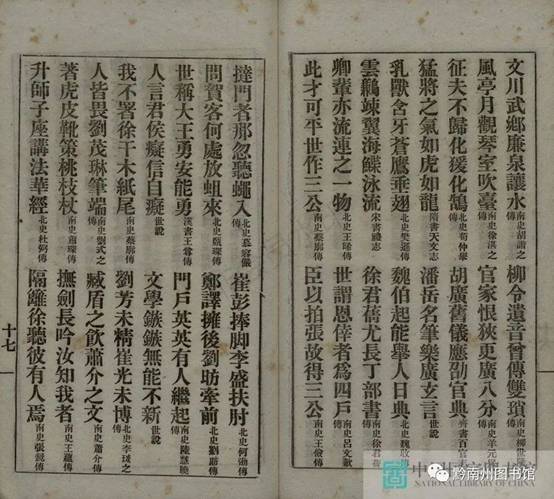 文川武鄉廉泉讓水南史胡諧之傳 柳令遺音會傳雙璅南史柳世傳
風亭月觀琴室吹臺南史徐湛之傳 官家恨狹更廣八分南史羊元傳
征夫不歸化猨化鵠北史荀仲舉傳 胡廣舊儀應劭官典齊書百官志
猛將之氣如虎如龍隋書天文志 潘岳名筆樂廣玄言世說
乳獸含牙蒼鷹垂翅北史樊遜傳 魏伯起能舉人日典北史魏收傳
雲鶴竦翼海鰈泳流宋書樂志 徐君蒨尤長丁部書南史徐君蒨傳
卿輩亦流連之一物北史王晞傳 世謂恩倖者為四戶南史呂文顯傳
此才可平世作三公南史蔡廓傳 臣以拍張故得三公南史王儉傳
撻門者那忽聽蠅入北史慕容儼傳 崔彭捧脚李盛扶肘北史何妥傳
問賀客何處放蛆來北史甄琛傳 鄭譯擁後劉昉牽前北史劉昉傳
世稱大王勇安能勇漢書王尊傳 門戶英英有人繼起南史陸慧曉傳
人言君侯癡信自癡世說 文學鏃鏃無能不新世說
我不署徐干木紙尾南史蔡廓傳 劉芳未精崔光未博北史李琰之傳
人皆畏劉茂琳筆端南史劉式之傳 臧盾之飲蕭介之文南史蕭介傳
著虎皮靴策桃枝杖南史蕭琛傳 撫劍長吟汝知我者南史王蘊傳
升師子座講法華經北史杜弼傳 隔籬徐聽彼有人焉南史張融傳
十七
黔南州图书馆